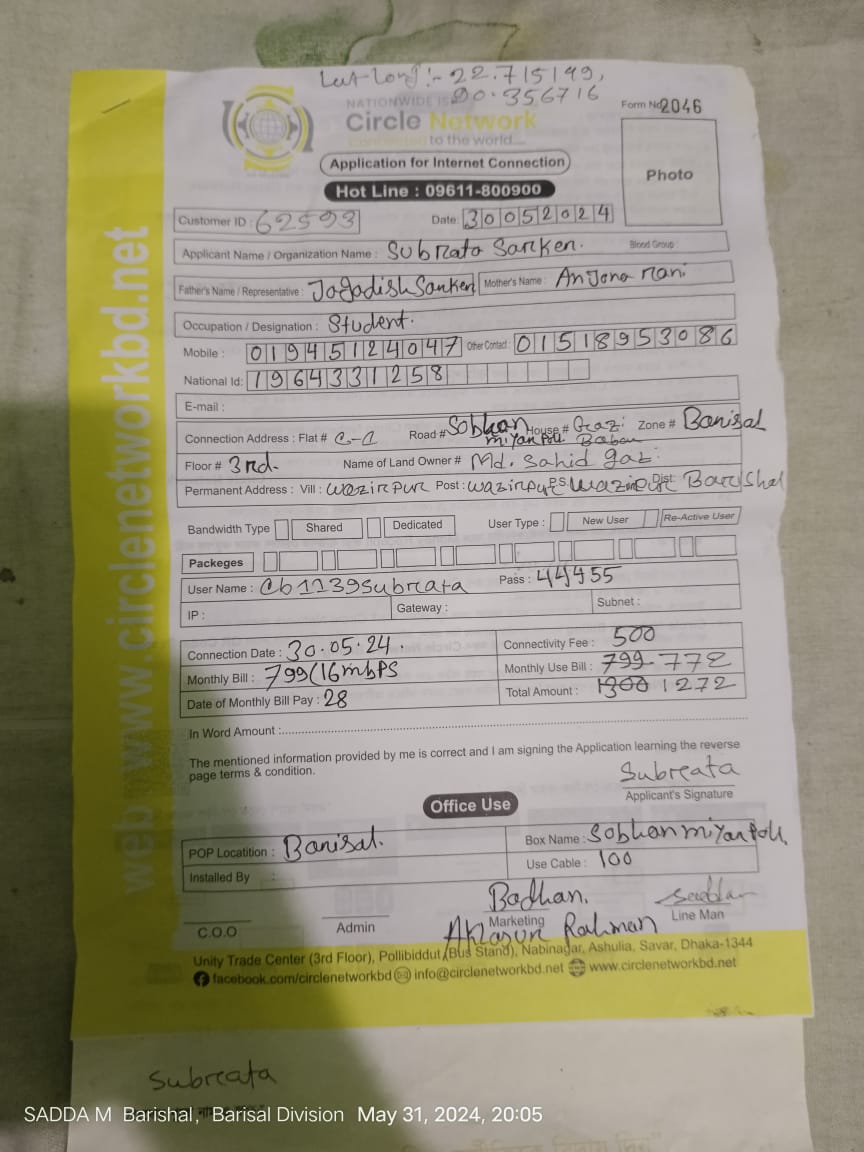 Lat Long :- 22.715149,
90.356716
NATIONWIDE IS
Form No 2046
Circle Network
to the world...
Application for Internet Connection
Photo
Hot Line : 09611-800900
Customer ID : 62593 Date: 30052024
Applicant Name / Organization Name : Subrata Sarker. Blood Group
Father's Name / Representative : Jagadish Sarker Mother's Name : Anjona Rani
Occupation / Designation : Student.
Mobile : 01945124047 Other Contact : 01518953086
National Id: 1964331258
E-mail :
Connection Address : Flat # C-C Road # Sobhan miyan Poll. House # Gazi Baban Zone # Barisal
Floor # 3rd. Name of Land Owner # Md. Sahid gazi
Permanent Address : Vill : wazirpur Post : wazirpur P.S. wazirpur Dist: Barishal
Bandwidth Type Shared Dedicated User Type : New User Re-Active User
Packeges
User Name : Cb1139subrata Pass : 44455
IP : Gateway : Subnet :
Connection Date : 30.05.24. Connectivity Fee : 500
Monthly Bill : 799(16mbps Monthly Use Bill : 799 772
Date of Monthly Bill Pay : 28 Total Amount : 1300 1272
In Word Amount :
The mentioned information provided by me is correct and I am signing the Application learning the reverse
page terms & condition.
Subrata
Applicant's Signature
Office Use
POP Locatition : Barisal. Box Name : Sobhan miyan Poll.
Installed By : Use Cable : 100
Badhan.
C.O.O Admin Marketing Line Man
Rahman
Unity Trade Center (3rd Floor), Pollibiddut (Bus Stand), Nabinagar, Ashulia, Savar, Dhaka-1344
facebook.com/circlenetworkbd info@circlenetworkbd.net www.circlenetworkbd.net
web www.circlenetworkbd.net
Subrata
SADDA M Barishal, Barisal Division May 31, 2024, 20:05